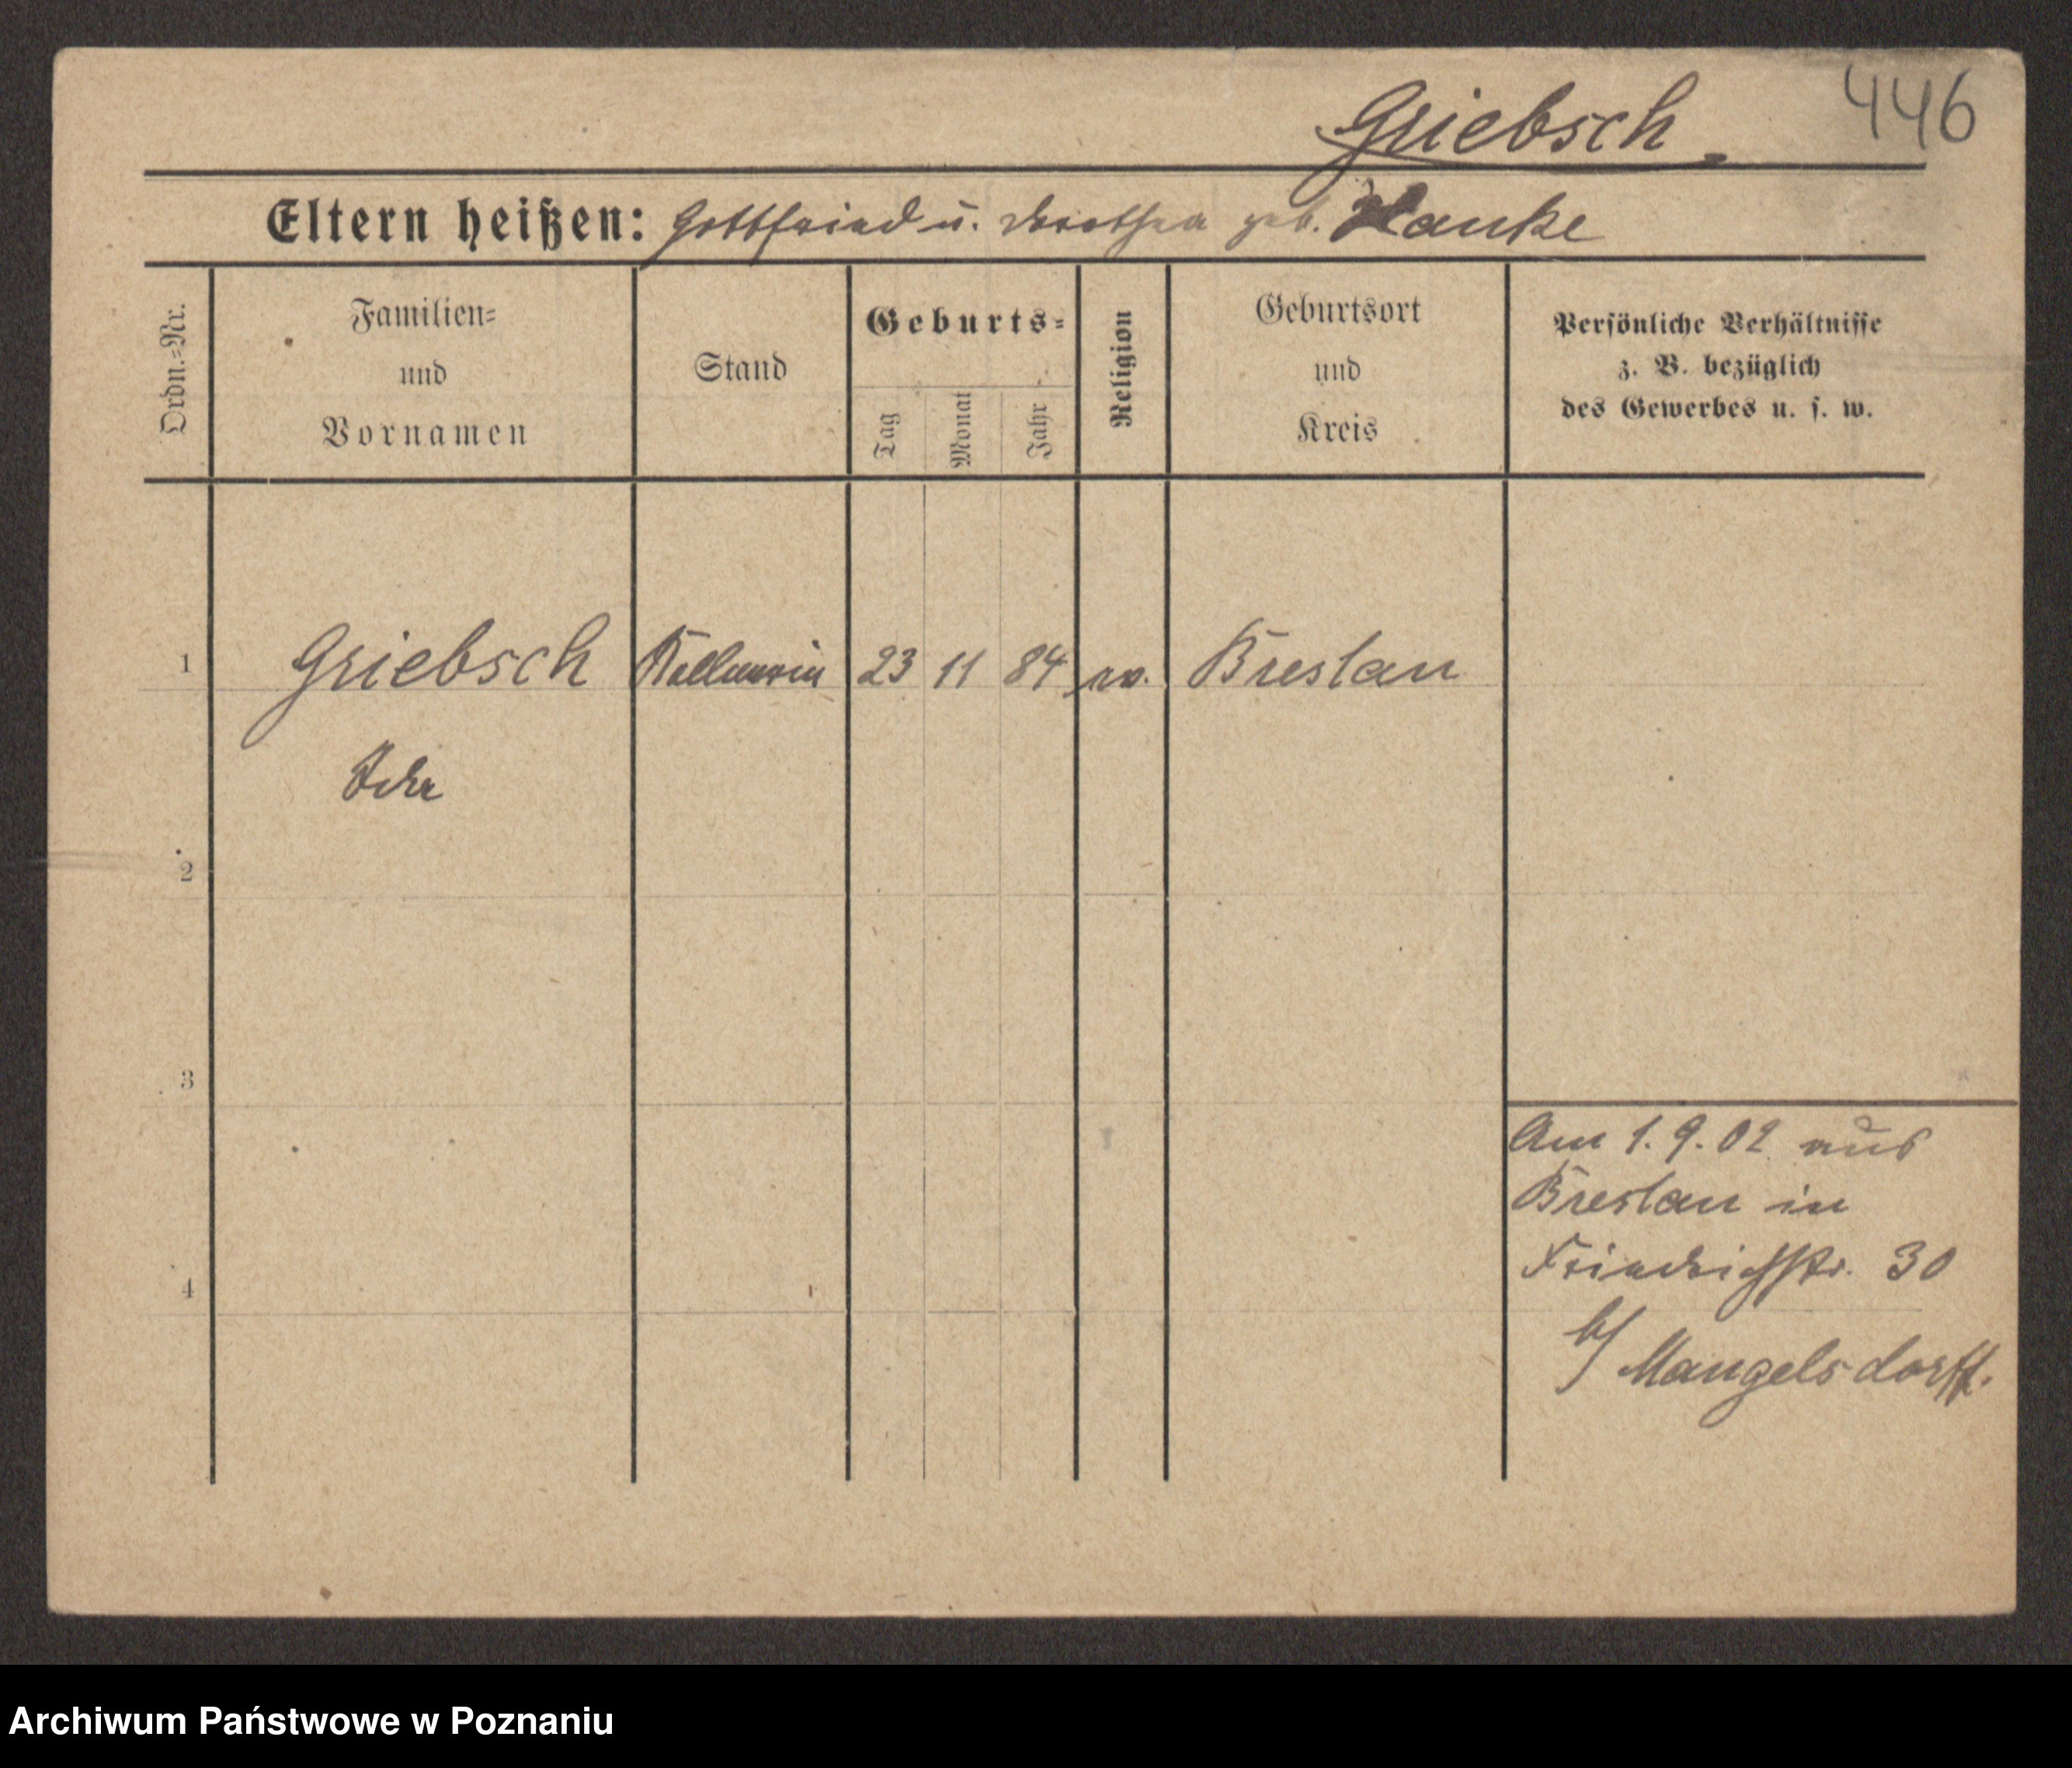 446
Griebsch.
Eltern heißen: Gottfried u. Dorothea geb. Hanke
Ordn.-Nr.
Familien-
und
Vornamen
Stand
Geburts-
Tag
Monat
Jahr
Religion
Geburtsort
und
Kreis
Persönliche Verhältnisse
z. B. bezüglich
des Gewerbes u. s. w.
1 Griebsch Kellnerin 23 11 84 ev. Breslau
2
3
4
Am 1.9.02 aus
Breslau in
Friedrichstr. 30
b/ Mangelsdorff.
Archiwum Państwowe w Poznaniu